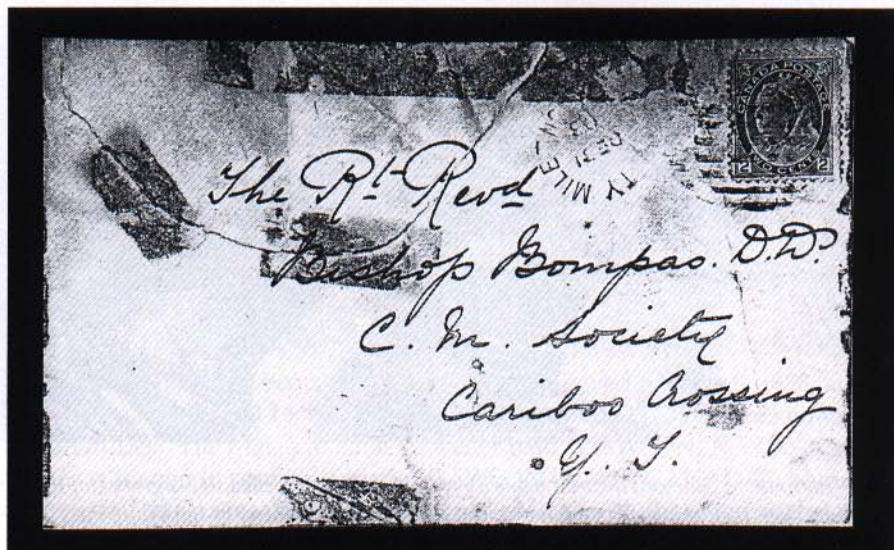 CANADA POSTAGE
2 TWO CENTS 2
TY MILE
The Rt. Revd
Bishop Bompas. D.D.
C. M. Society
Cariboo Crossing
Y. T.